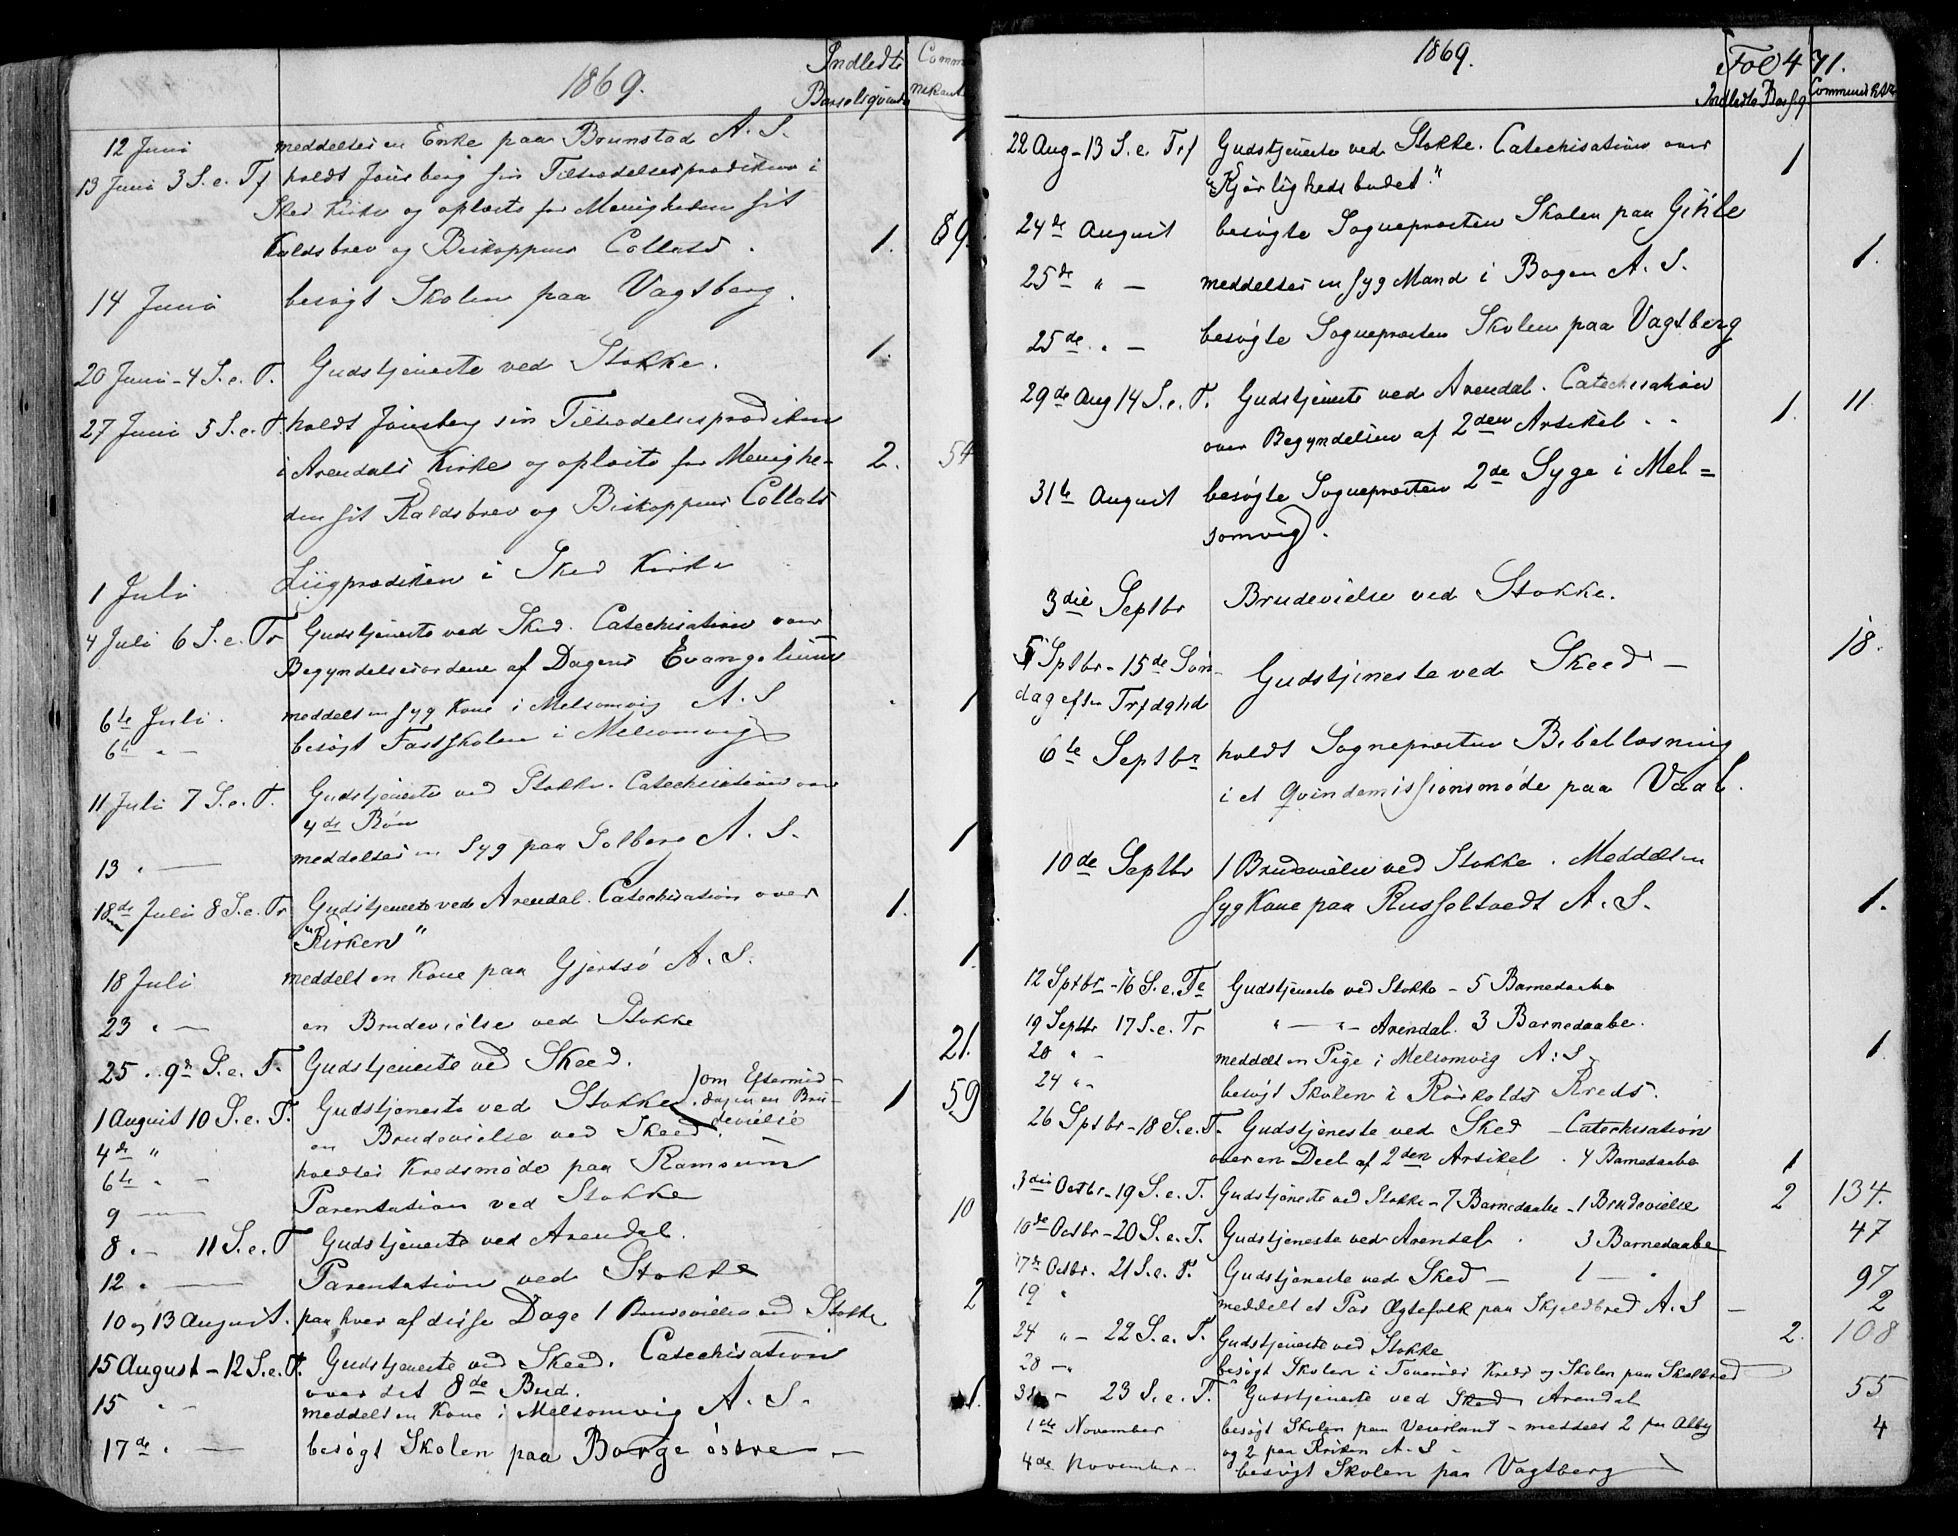 1869.
Indledte Commu
Barselsqvinder nikanter
12 Juni meddeltes en Enke paa Brunstad A. S. 1
13 Juni 3 S. e. Tf holdt Jonsberg sin Tiltrædelsesprædiken i
Sked Kirke og oplæste for Menigheden sit
Kaldsbrev og Biskoppens Collats. 1. 89.
14 Juni besøgt Skolen paa Vagtberg.
20 Juni - 4 S. e. T. Gudstjeneste ved Stokke. 1.
27 Juni 5 S. e. T. holdt Jonsberg sin Tiltrædelsesprædiken
i Arendals Kirke og oplæste for Menighe- 2. 54
den sit Kaldsbrev og Biskoppens Collats
1 Juli Liigprædiken i Sked Kirke
4 Juli 6 S. e. Tr Gudstjeneste ved Sked. Catechisation over
Begyndelsesordene af Dagens Evangelium
6te Juli. meddelt en syg Kone i Melsomvig A. S 1
6te " — besøgt Fastskolen i Melsomvig
11 Juli 7 S. e. T. Gudstjeneste ved Stokke. Catechisation over
4de Bøn
13 " — meddeltes en Syg paa Solberg A. S. 1
18de Juli 8 S. e. Tr Gudstjeneste ved Arendal. Catechisation over 1.
"Kirken"
18 Juli meddelt en Kone paa Gjertsø A. S. 1.
23 " — en Brudevielse ved Stokke
25 . 9de S. e. T. Gudstjeneste ved Skeed. 21.
1 August 10 S. e. T. Gudstjeneste ved Stokke. (om Eftermid- 1 59
dagen en Bru-
devielse
4de " en Brudevielse ved Skeed.
6te " — holdtes Kredsmøde paa Ramsum
9 — Parentation ved Stokke
8 . — 11 S. e. T Gudstjeneste ved Arendal. 10
12 . — Parentation ved Stokke
10 og 13 August. paa hver af disse Dage 1 Brudevielse ved Stokke 2
15 August - 12 S. e. T. Gudstjeneste ved Skeed. Catechisation
over det 8de Bud.
15 " - meddelt en Kone i Melsomvig A. S. 1.
17de " — besøgt Skolen paa Borge østre —
1869. Fol 471.
Indledte Barsq Communik
22 Aug - 13 S. e. Trf Gudstjeneste ved Stokke. Catechisation over 1
"Kjærlighedsbudet."
24de August besøgte Sognepræsten Skolen paa Gihle
25de " — meddeltes en syg Mand i Bogen A. S. 1.
25de " — besøgte Sognepræsten Skolen paa Vagtberg
29de Aug 14 S. e. T. Gudstjeneste ved Arendal. Catechisation
over Begyndelsen af 2den Artikel . . 1. 11
31te August besøgte Sognepræsten 2de Syge i Mel=
somvig.
3die Septbr Brudevielse ved Stokke.
5 Sptbr - 15de Søn- Gudstjeneste ved Skeed — 18.
dag efter Trfdghd
6te Septbr holdt Sognepræsten Bibellæsning
i et Qvindemissionsmøde paa Vaal.
10de Septbr 1 Brudevielse ved Stokke. Meddelt en
syg Kone paa Russeltvedt A. S. 1.
12 Sptbr - 16 S. e. Te Gudstjeneste ved Stokke - 5 Barnedaabe
19 Septbr 17 S. e. Tr " — " — Arendal. 3 Barnedaabe.
20 " - meddelt en Pige i Melsomvig A. S. 1.
24 " - besøgt Skolen i Rørkolds Kreds.
26 Sptbr - 18 S. e. T. Gudstjeneste ved Sked - Catechisation
over en Deel af 2den Artikel . 4 Barnedaabe 1
3die Octbr - 19 S. e. T. Gudstjeneste ved Stokke - 7 Barnedaabe - 1 Brudevielse 2 134.
10de Octbr - 20 S. e. T. Gudstjeneste ved Arendal . 3 Barnedaabe 47
17de Octbr. 21 S. e. T. Gudstjeneste ved Sked — 1 — " 97
19 " meddelt et Par Ægtefolk paa Skjeldbred A. S — 2
24 " - 22 S. e. T. Gudstjeneste ved Stokke 2. 108
28 - " besøgt Skolen i Kreds og Skolen paa
31 - 23 S. e. T. Gudstjeneste ved Sked Arendal 55
1ste November besøgt Skolen paa Veierland - meddelt 2 paa Alby 4
og 2 paa A. S -
4de November - besøgt Skolen paa Vagtberg